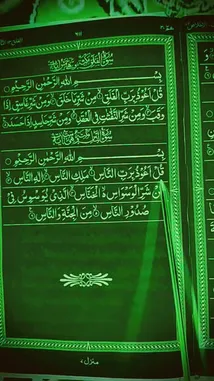 سُوْرَةُ الْفَلَقِ
بِسْمِ اللهِ الرَّحْمٰنِ الرَّحِيْمِ
قُلْ اَعُوْذُ بِرَبِّ الْفَلَقِ ۙ مِنْ شَرِّ مَا خَلَقَ ۙ وَمِنْ شَرِّ غَاسِقٍ اِذَا
وَقَبَ ۙ وَمِنْ شَرِّ النَّفّٰثٰتِ فِى الْعُقَدِ ۙ وَمِنْ شَرِّ حَاسِدٍ اِذَا حَسَدَ
سُوْرَةُ النَّاسِ
بِسْمِ اللهِ الرَّحْمٰنِ الرَّحِيْمِ
قُلْ اَعُوْذُ بِرَبِّ النَّاسِ ۙ مَلِكِ النَّاسِ ۙ اِلٰهِ النَّاسِ ۙ
مِنْ شَرِّ الْوَسْوَاسِ ۙ الْخَنَّاسِ ۙ الَّذِىْ يُوَسْوِسُ فِىْ
صُدُوْرِ النَّاسِ ۙ مِنَ الْجِنَّةِ وَالنَّاسِ
منزل ٧